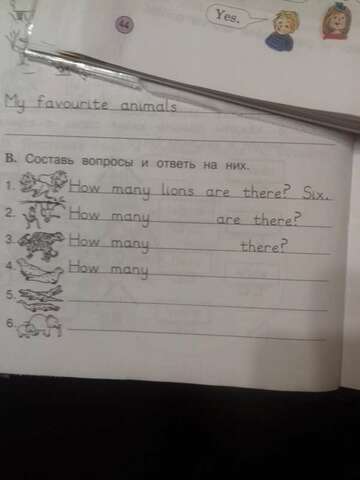 Yes.
44
My favourite animals
В. Составь вопросы и ответь на них.
1. How many lions are there? Six.
2. How many are there?
3. How many there?
4. How many
5.
6.